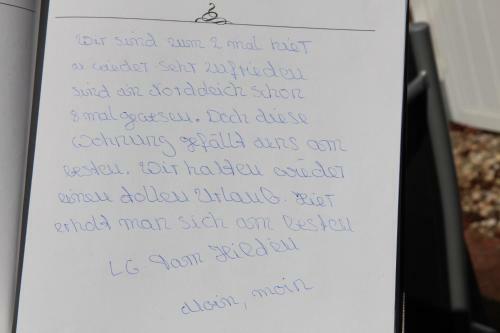 Wir sind zum 2 mal hier
u wieder sehr zufrieden
sind in Norddeich schon
8 mal gewesen. Doch diese
Wohnung gefällt uns am
besten. Wir hatten wieder
einen tollen Urlaub. Hier
erholt man sich am besten
LG Fam
Moin, moin